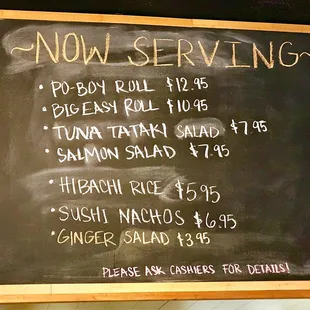 ~NOW SERVING~
• PO-BOY ROLL $12.95
• BIG EASY ROLL $10.95
• TUNA TATAKI SALAD $7.95
• SALMON SALAD $7.95
• HIBACHI RICE $5.95
• SUSHI NACHOS $6.95
• GINGER SALAD $3.95
PLEASE ASK CASHIERS FOR DETAILS!